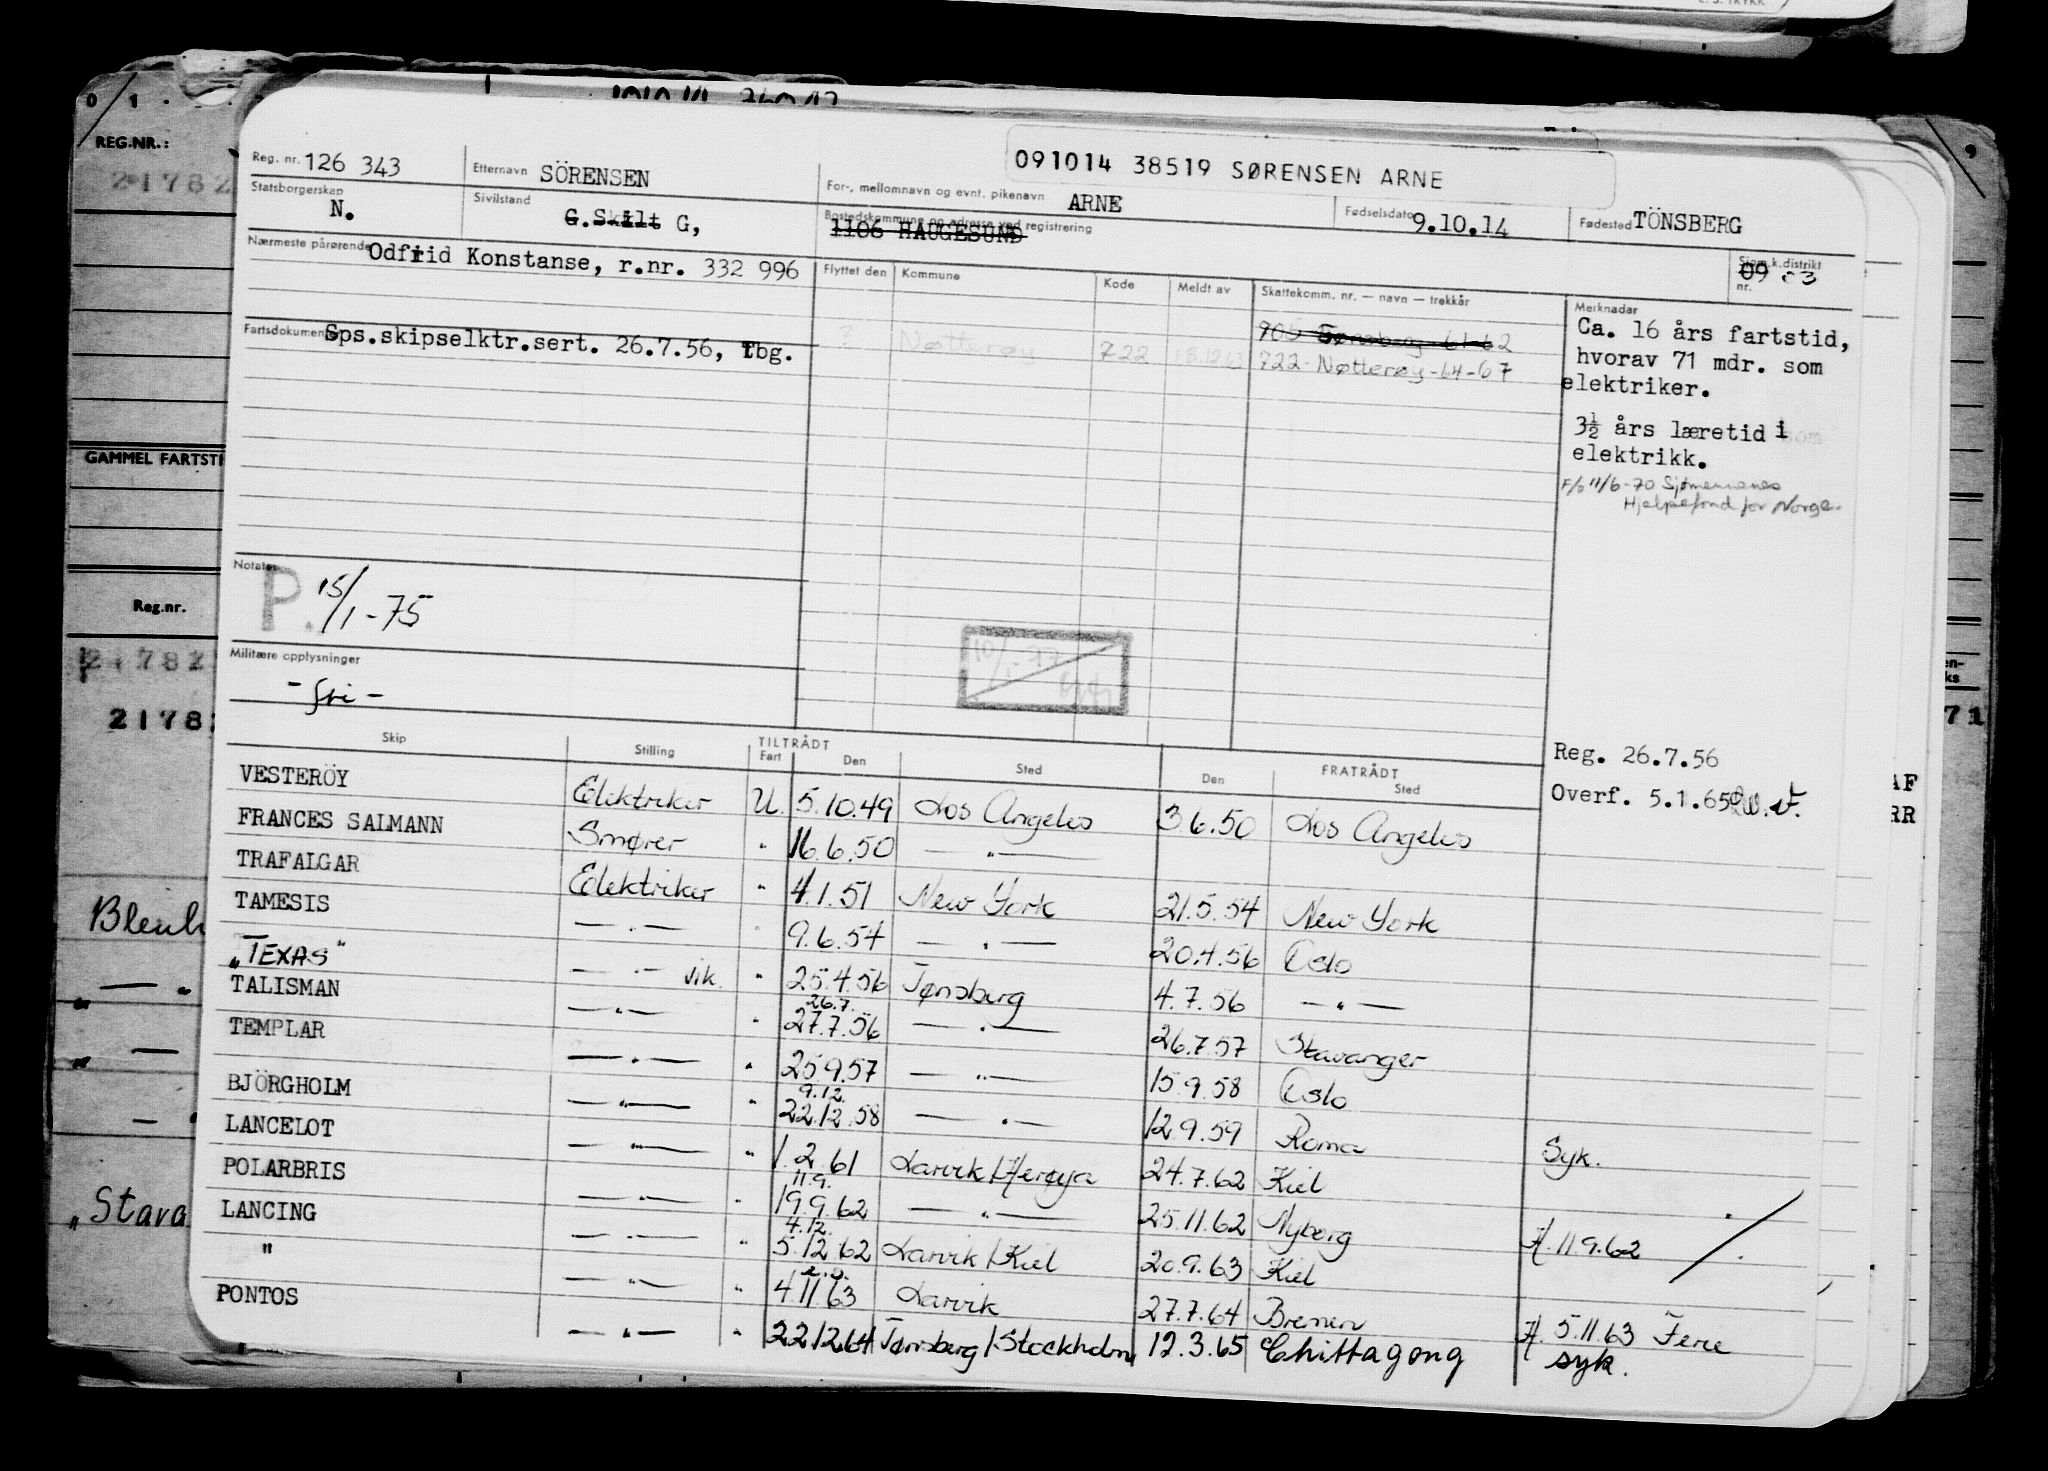 L. S. TRYKK
REG.NR.:
21782
GAMMEL FARTSTI
Reg.nr.
21782
21782
Blenh
"Stava
091014 38519 SØRENSEN ARNE
Reg. nr. 126 343 Etternavn SÖRENSEN For-, mellomnavn og evnt. pikenavn ARNE
Statsborgerskap N. Sivilstand G.Skilt G, Bostedskommune og adresse ved registrering 1106 HAUGESUND Fødselsdato 9.10.14 Fødested TÖNSBERG
Nærmeste pårørende Odfrid Konstanse, r.nr. 332 996
Sjøm.k.distrikt nr. 09 03
Flyttet den Kommune Kode Meldt av Skattekomm. nr. — navn — trekkår Merknader
Fartsdokumenter Sps.skipselktr.sert. 26.7.56, Tbg.
905 Tønsberg-61-62
3 Nøtterøy 722 18.12.63 722-Nøtterøy-64-67
Ca. 16 års fartstid,
hvorav 71 mdr. som
elektriker.
3½ års læretid i
elektrikk.
F/o 11/6-70 Sjømennenes
Hjelpefond for Norge.
Notater P. 15/1-75
10/1-77
Militære opplysninger
- fri -
Reg. 26.7.56
Overf. 5.1.65
Skip Stilling TILTRÅDT Fart Den Sted FRATRÅDT Den Sted
VESTERÖY Elektriker U. 5.10.49 Los Angeles 3 6.50 Los Angeles
FRANCES SALMANN Smører " 16.6.50 — " —
TRAFALGAR Elektriker " 4.1.51 New York 21.5.54 New York
TAMESIS — " — " 9.6.54 — " — 20.4.56 Oslo
"TEXAS" — " — vik. " 25.4.56 Tønsberg 4.7.56 — " —
TALISMAN — " — " 26.7. 27.7.56 — " — 26.7.57 Stavanger
TEMPLAR — " — " 25.9.57 — " — 15.9.58 Oslo
BJÖRGHOLM — " — " 9.12. 22.12.58 — " — 12.9.59 Roma Syk.
LANCELOT — " — " 1.2.61 Larvik/Herøya 24.7.62 Kiel
POLARBRIS — " — " 11.9. 19.9.62 — " — 25.11.62 Nyborg A. 11.9.62
LANCING — " — " 4.12. 5.12 62 Larvik/Kiel 20.9.63 Kiel
" — " — " e.o. 4.11.63 Larvik 27.7.64 Bremen A. 5.11.63 Ferie
PONTOS — " — " 22.12.64 Tønsberg/Stockholm 12.3.65 Chittagong syk.